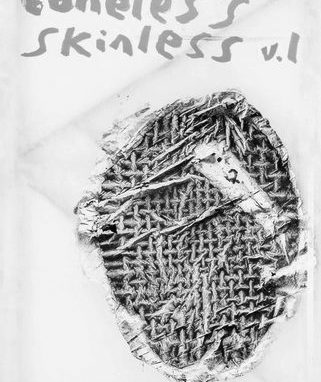 boneless
skinless v.1